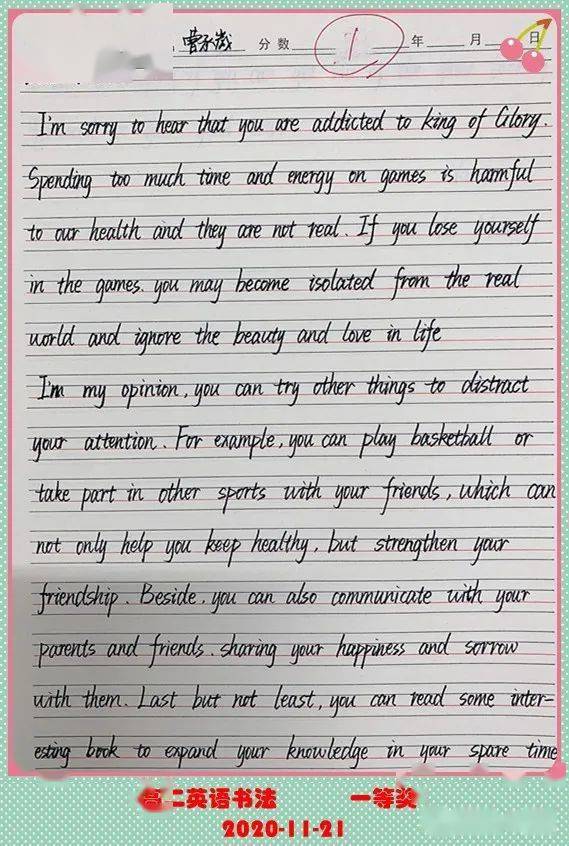 分数 1 年 月 日
I'm sorry to hear that you are addicted to king of Glory.
Spending too much time and energy on games is harmful
to our health and they are not real. If you lose yourself
in the games. you may become isolated from the real
world and ignore the beauty and love in life
I'm my opinion, you can try other things to distract
your attention. For example, you can play basketball or
take part in other sports with your friends, which can
not only help you keep healthy, but strengthen your
friendship. Beside. you can also communicate with your
parents and friends. sharing your happiness and sorrow
with them. Last but not least, you can read some inter-
esting book to expand your knowledge in your spare time
高二英语书法 一等奖
2020-11-21